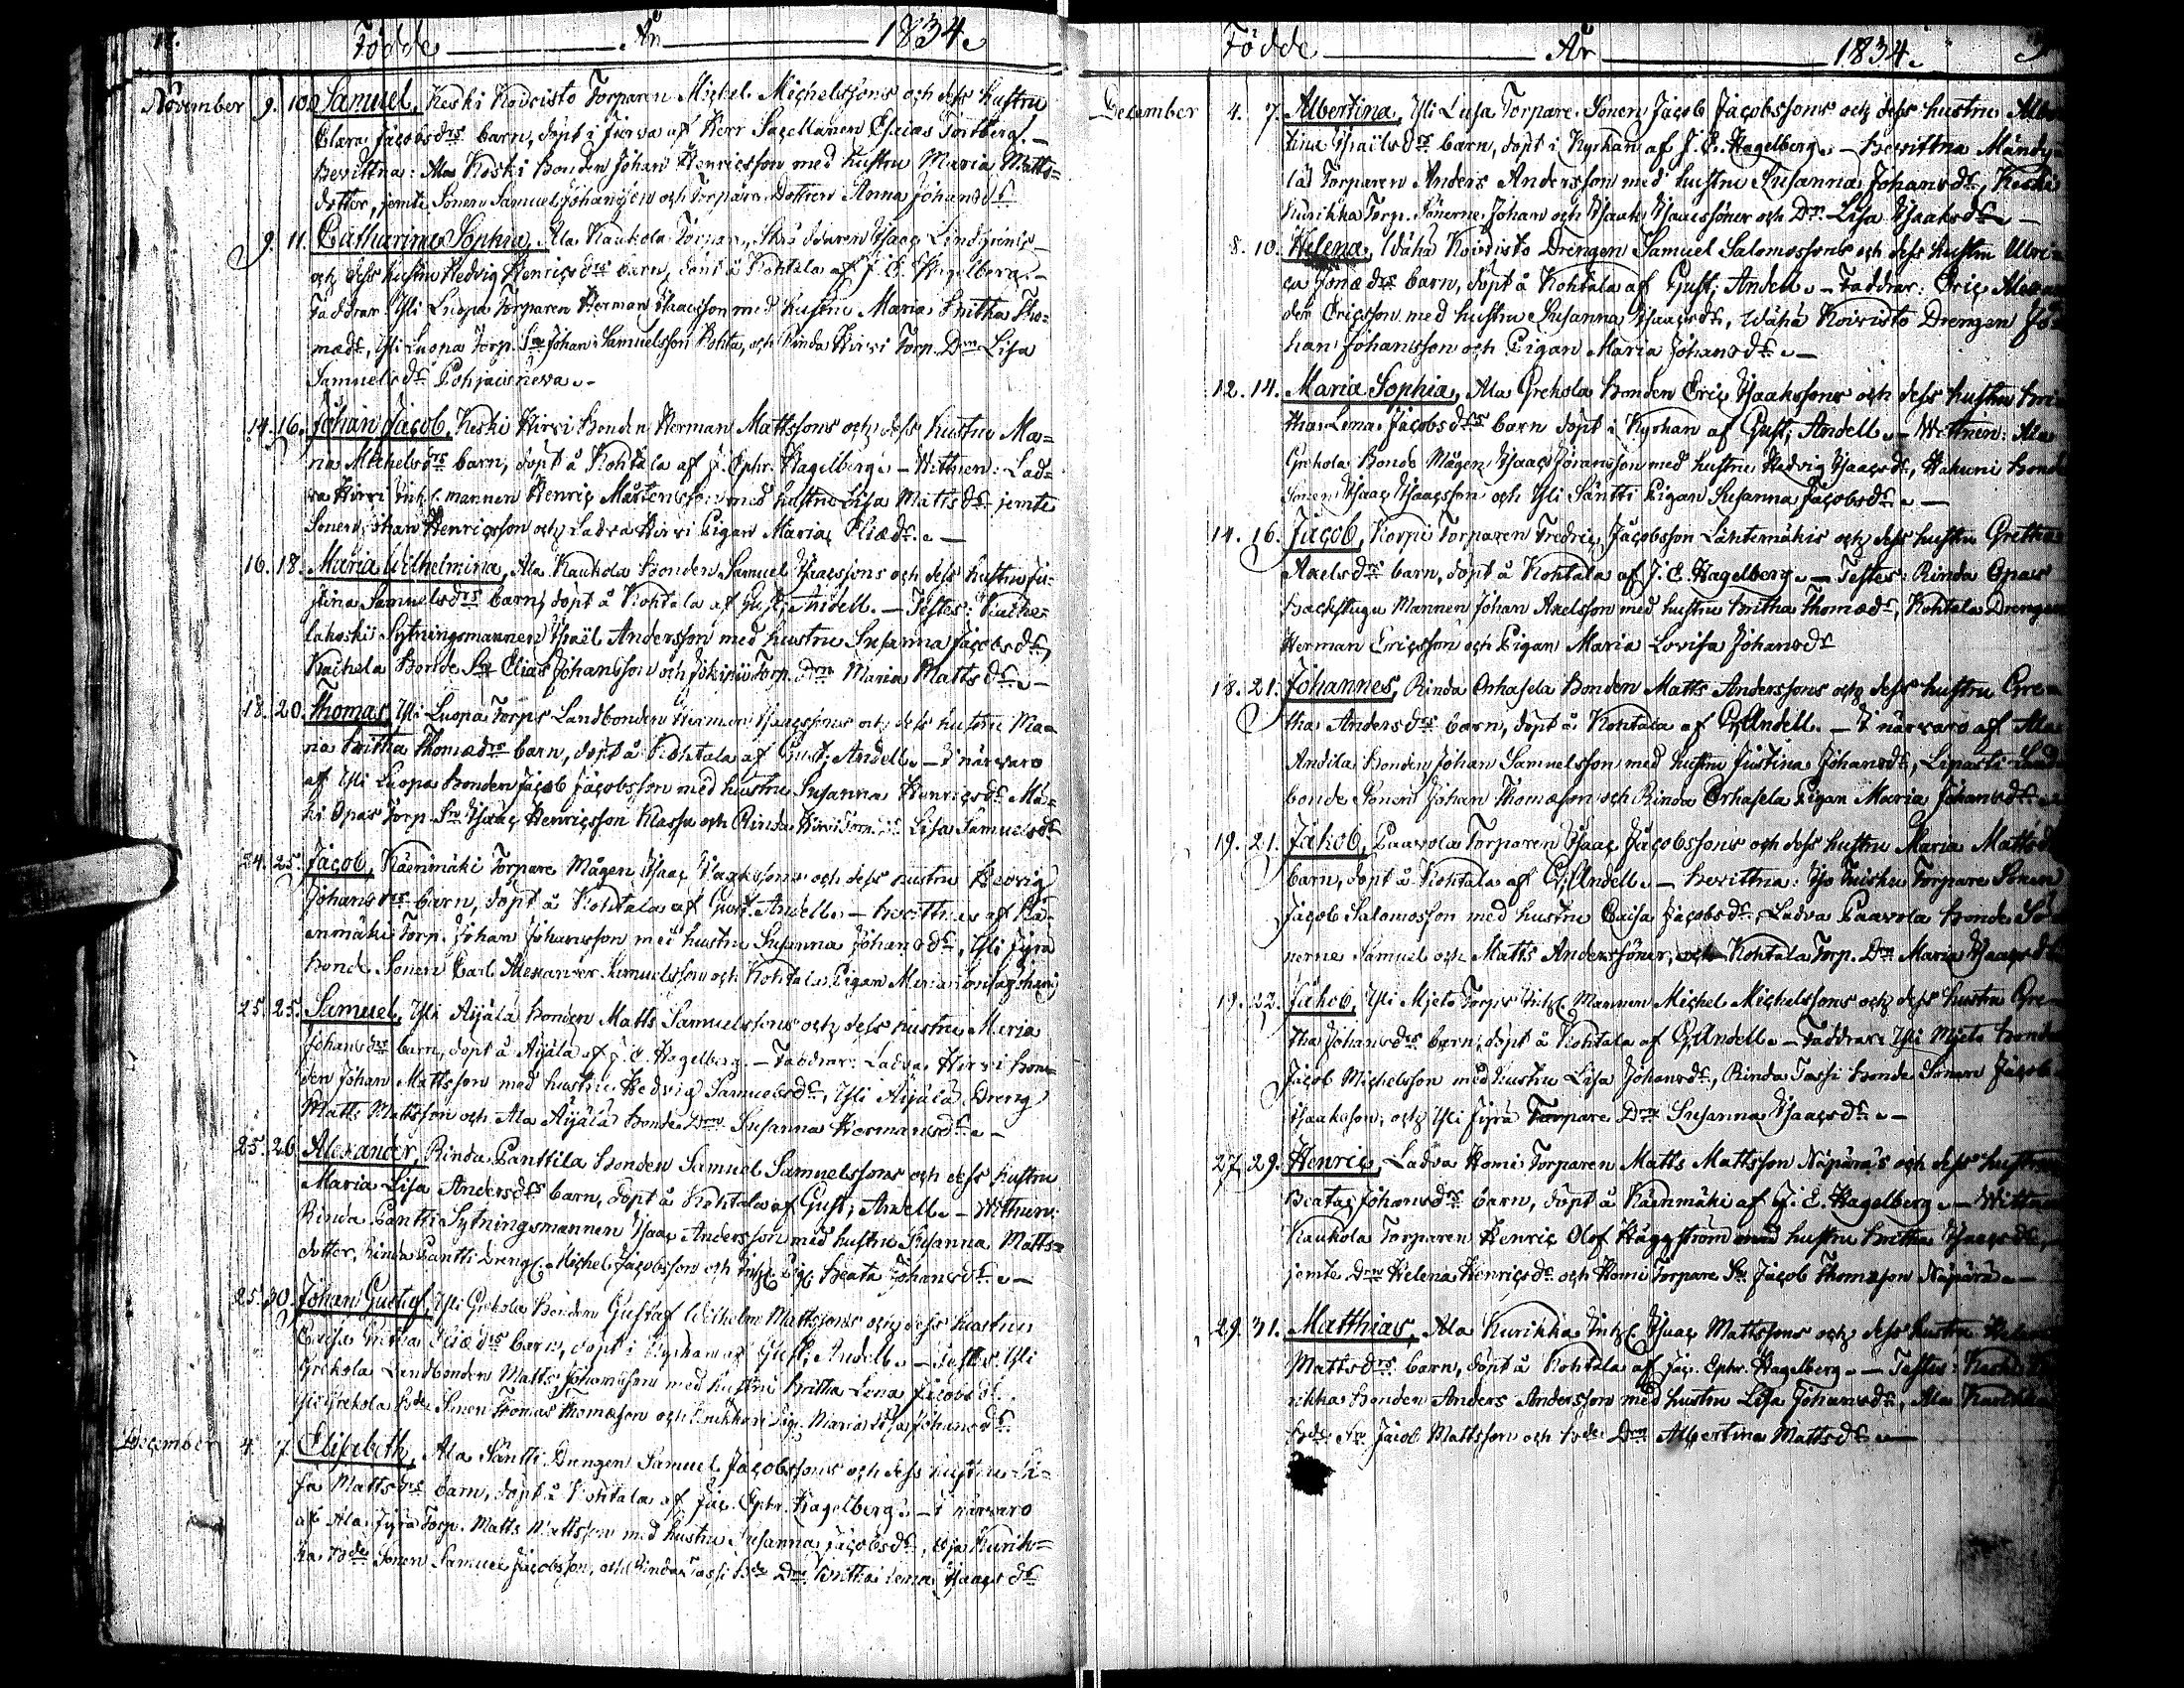 Födde År 1834.
November 9. 10. Samuel, Keski Koivisto Torparen Michel Michelssons och dess hustru
Clara Jacobsdrs barn, döpt i Jurva af Herr Sacellanen Esaias Tortberg. —
Bevittna: Ala Koski Bonden Johan Henricsson med hustru Maria Matts=
dotter, jemte Sonen Samuel Johansson och Torpare Dottren Anna Johansdr
9. 11. Catharina Sophia, Ala Kaukola Torpar, Skräddaren Isaac Lindgrens
och dess hustru Hedvig Henricsdrs barn, döpt å Kohtala af J. E. Hagelberg. —
Faddrar: Yli Luopa Torparen Herman Isaacsson med hustru Maria Britha Tho=
mædr, Yli Luopa Torp. Sn Johan Samuelsson Kohta, och Rinda Hirvi Torp. Drn Lisa
Samuelsdr Pohjaisneva. —
14. 16. Johan Jacob, Keski Hirvi Bonden Herman Mattssons och dess hustru Ma=
ria Michelsdrs barn, döpt å Kohtala af J. Ephr. Hagelberg. — Wittnen: Lad=
va Hirvi Inh. mannen Henric Mårtensson med hustru Lisa Mattsdr jemte
Sonen Johan Henricsson och Ladva Hirvi Pigan Maria Eliædr. —
16. 18. Maria Wilhelmina, Ala Kaukola Bonden Samuel Isaacssons och dess hustru Ju=
stina Samuelsdrs barn, döpt å Kohtala af Gust. Andell. — Testes: Kaihe=
lakoski Sytningsmannen Israël Andersson med hustru Susanna Jacobsdr,
Kaihela Bonde Sn Elias Johansson och Jokipii Torp. Drn Maria Mattsdr. —
18. 20. Thomas, Yli Luopa Torps Landbonden Herman Isaacssons och dess hustru Ma=
ria Britha Thomædrs barn, döpt å Kohtala af Gust. Andell. — I närvaro
af Yli Luopa Bonden Jacob Jacobsson med hustru Susanna Henricsdr Mä=
ki Opas Torp. Sn Isaac Henricsson Klassa och Rinda Hirvi Torp. Dr Lisa Samuelsdr
24. 25. Jacob, Käenmäki Torpare Mågen Isaac Isaakssons och dess hustru Hedvig
Johansdrs barn, döpt å Kohtala af Gust. Andell. — Bevittnes af Kä=
enmäki Torp. Johan Johansson med hustru Susanna Johansdr, Yli Jyrä
Bonde Sonen Carl Alexander Samuelsson och Kohtala Pigan Maria Lovisa Johansdr
25. 25. Samuel, Yli Äijälä Bonden Matts Samuelssons och dess hustru Maria
Johansdrs barn, döpt å Äijälä af J. E. Hagelberg. — Faddrar: Ladva Hirvi Bon=
den Johan Mattsson med hustru Hedvig Samuelsdr, Yli Äijälä Dreng
Matts Mattsson och Ala Äijälä Bonde Drn Susanna Hermansdr. —
25. 26. Alexander, Rinda Panttila Bonden Samuel Samuelssons och dess hustru
Maria Lisa Andersdrs barn, döpt å Kohtala af Gust. Andell. — Wittnen:
Rinda Pantti Sytningsmannen Isaac Andersson med hustru Susanna Matts=
dotter, Rinda Pantti Dreng. Michel Jacobsson och Inh. Pig. Beata Johansdr. —
25. 30. Johan Gustaf, Yli Grekola Bonden Gustaf Wilhelm Mattssons och dess hustru
Caisa Britha Eliædrs barn, döpt i Kyrkan af Gust. Andell. — Testes: Yli
Grekola Landbonden Matts Johansson med hustru Britta Lena Jacobsdr.
Yli Grekola Bde Sonen Thomas Thomæson och Pig. Maria Lisa Johansdr.
December 4. 7. Elisabeth, Ala Säntti Drengen Samuel Jacobssons och dess hustru Li=
sa Mattsdrs barn, döpt å Kohtala af Jac. Ephr. Hagelberg. — I närvaro
af Ala Jyrä Torp. Matts Mattsson med hustru Susanna Jacobsdr, Kurik=
ka Bde Sonen Samuel Jacobsson, och Rinda Tassi Bde Drn Britha Lena Isaacsdr
Födde År 1834.
December 4. 7. Albertina, Yli Lusa Torpare Sonen Jacob Jacobssons och dess hustru Alber
tina Israëlsdrs barn, döpt i Kyrkan af J. E. Hagelberg. — Bevittna Mändy=
lä Torparen Anders Andersson med hustru Susanna Johansdr, Keski
Kurikka Torp. Sönerne Johan och Isaak Isaacssöner och Dr Lisa Isaaksdr —
8. 10. Helena, Wähä Koivisto Drengen Samuel Salomossons och dess hustru Ulri=
ca Jonædrs barn, döpt å Kohtala af Gust. Andell. — Faddrar: Eric Alexan
der Ericsson med hustru Susanna Isaacsdr, Wähä Koivisto Drengen Jo=
han Johansson och Pigan Maria Johansdr. —
12. 14. Maria Sophia, Ala Grekola Bonden Eric Isaakssons och dess hustru Bri
tha Lena Jacobsdrs barn döpt i Kyrkan af Gust. Andell. — Wittnen: Ala
Grekola Bonde Mågen Isaac Göransson med hustru Hedvig Isaacsdr, Hakuni Bonde
Sonen Isaac Isaacsson och Yli Säntti Pigan Susanna Jacobsdr. —
14. 16. Jacob, Korpi Torparen Fredric Jacobsson Lähtemäkis och dess hustru Gretha
Axelsdrs barn, döpt å Kohtala af J. E. Hagelberg. — Testes: Rinda Opas
Backstugu Mannen Johan Axelsson med hustru Britha Thomædr, Kohtala Drengen
Herman Ericsson och Pigan Maria Lovisa Johansdr
18. 21. Johannes, Rinda Orhasela Bonden Matts Anderssons och dess hustru Gre=
tha Andersdrs barn, döpt å Kohtala af G. Andell. — I närvaro af Ala
Andila Bonden Johan Samuelsson med hustru Justina Johansdr, Lipasti Land
bonde Sonen Johan Thomæson och Rinda Orhasela Pigan Maria Johansdr. —
19. 21. Jakob, Paavola Torparen Isaac Jacobssons och dess hustru Maria Mattsdrs
barn, döpt å Kohtala af G. Andell. — Bevittna: Iso Tuisku Torpare Sonen
Jacob Salomosson med hustru Caisa Jacobsdr, Ladva Paavola Bonde Sö=
nerne Samuel och Matts Anderssöner, och Kohtala Torp. Drn Maria Isaacsdr
19. 22. Jakob, Yli Mjeto Torps Inh. Mannen Michel Michelssons och dess hustru Gre=
tha Johansdrs barn, döpt å Kohtala af G. Andell. — Faddrar: Yli Mjeto Bonden
Jacob Michelsson med hustru Lisa Johansdr, Rinda Tassi Bonde Sonen Jacob
Isaaksson, och Yli Jyrä Torpare Drn Susanna Isaacsdr. —
27. 29. Henric, Ladva Homi Torparen Matts Mattsson Näpärä's och dess hustru
Beata Johansdrs barn, döpt å Käenmäki af J. E. Hagelberg. — Wittnen
Kaukola Torparen Henric Olof Häggström med hustru Britha Isaacsdr,
jemte Drn Helena Henricsdr och Homi Torpare Sn Jacob Thomæson Näpärä. —
29. 31. Matthias, Ala Kurikka Inh. Isaac Mattssons och dess hustru Helena
Mattsdrs barn, döpt å Kohtala af Jac. Ephr. Hagelberg. — Testes: Keski Ku
rikka Bonden Anders Andersson med hustru Lisa Johansdr, Ala Kurikka
Bde Sn Jacob Mattsson och Bde Drn Albertina Mattsdr. —